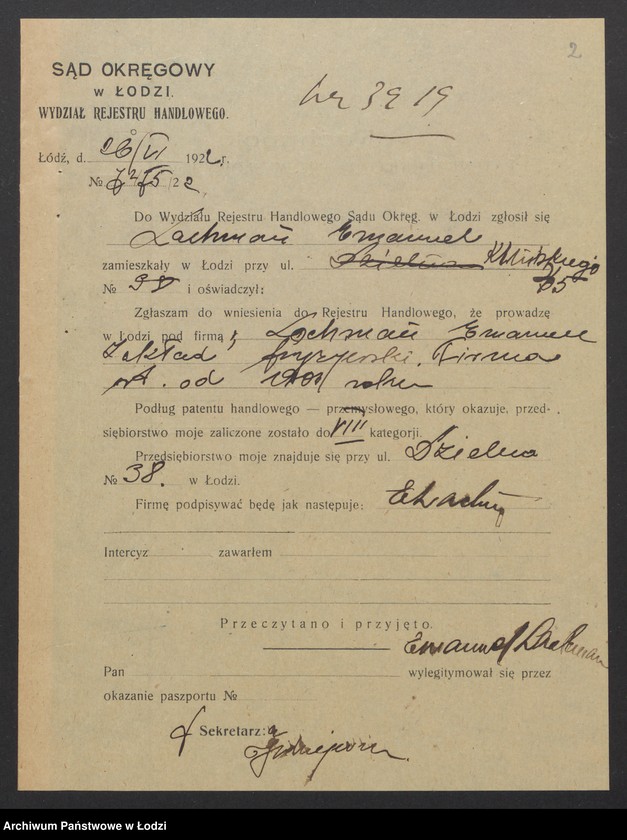 2
SĄD OKRĘGOWY
w ŁODZI.
WYDZIAŁ REJESTRU HANDLOWEGO.
Nr 3919
Łódź, d. 26/VI 1922 r.
№ /22
Do Wydziału Rejestru Handlowego Sądu Okręg. w Łodzi zgłosił się
Lachman Emanuel
zamieszkały w Łodzi przy ul. Dzielna Kilińskiego
№ 38 i oświadczył:
Zgłaszam do wniesienia do Rejestru Handlowego, że prowadzę
w Łodzi pod firmą: Lachman Emanuel
Zakład fryzjerski. Firma
od roku
Podług patentu handlowego — przemysłowego, który okazuje, przed-
siębiorstwo moje zaliczone zostało do VIII kategorji.
Przedsiębiorstwo moje znajduje się przy ul. Dzielna
№ 38. w Łodzi.
Firmę podpisywać będę jak następuje: ELachman
Intercyz zawarłem
Przeczytano i przyjęto.
Emanuel Lachman
Pan wylegitymował się przez
okazanie paszportu №
Sekretarz:
Archiwum Państwowe w Łodzi